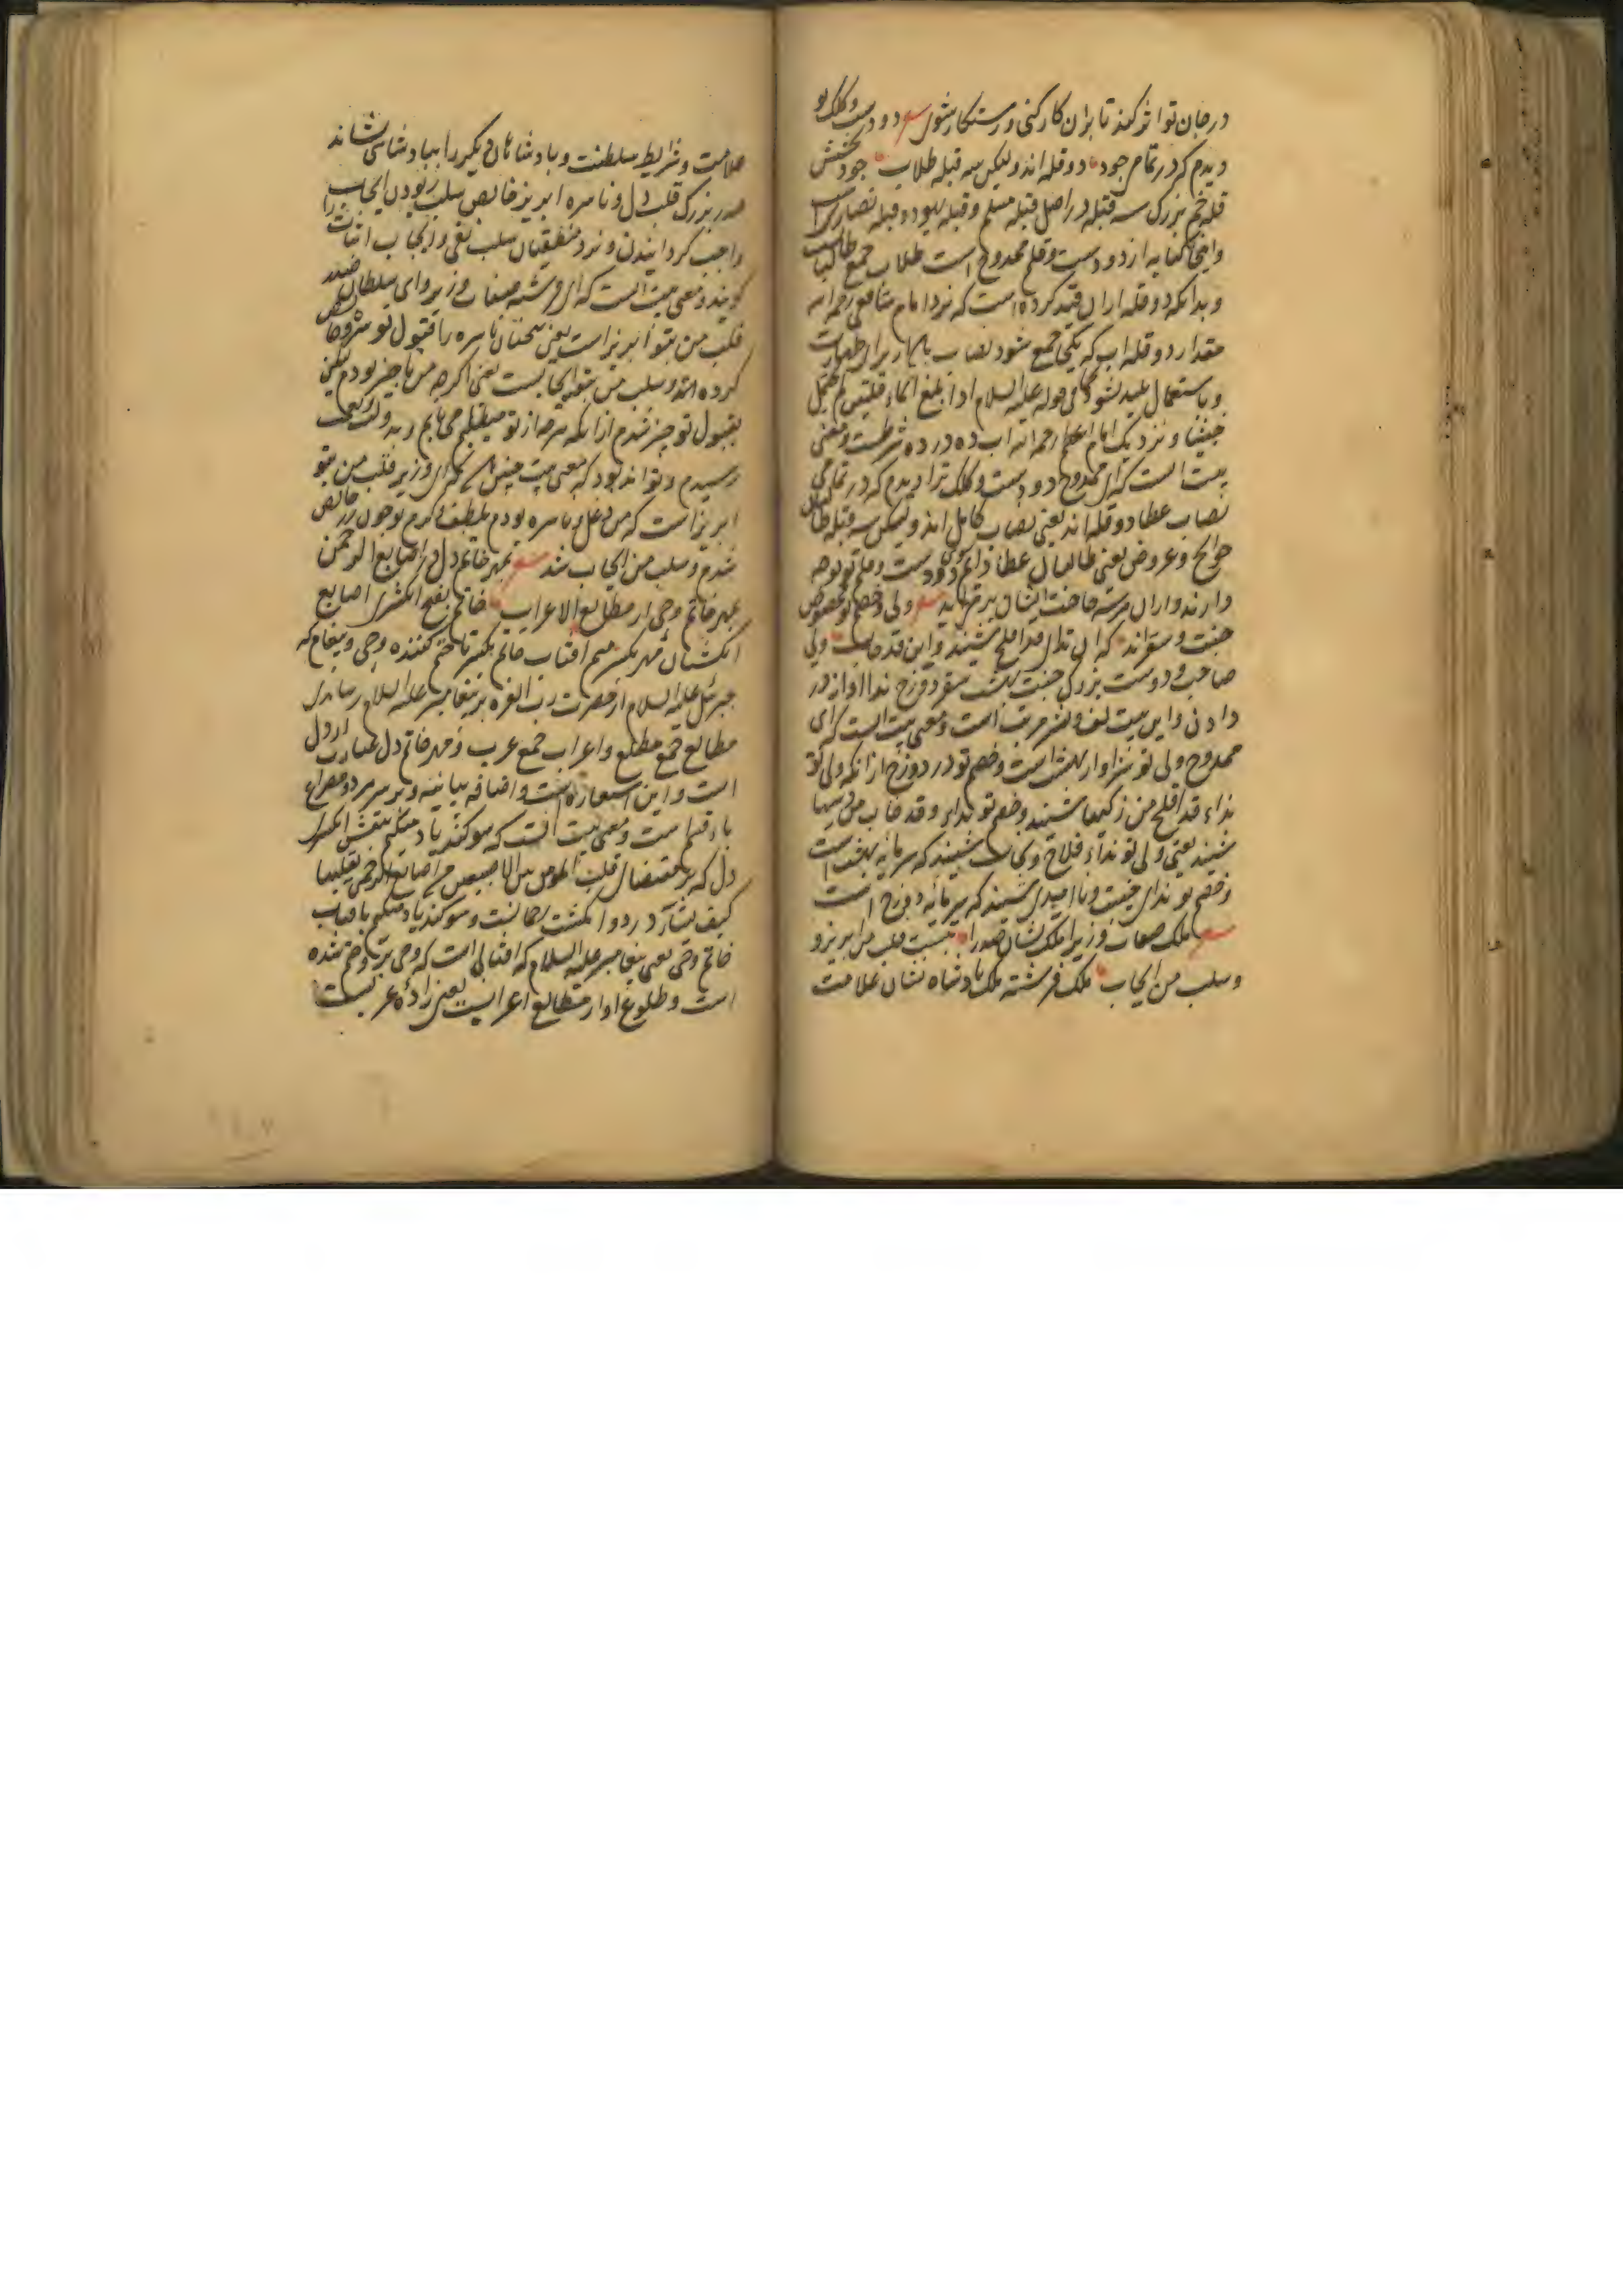 در جان تو اثر کند تا بران کار کنی و رستکار شوی دو دست و کلک تو
دیدم که در تمام جود دو قله اند ولیکن سه قبله طلاب جود بخشش
قله خم بزرک سه قبله در اصل قبله مسلم و قبله یهود و قبله نصاری است
و اینجا کنایه از دو دست و قلم ممدوح است طلاب جمع طالب
و بدانکه دو قله ازان قید کرده است که نزد امام شافعی رحمه الله
مقدار دو قله اب که یکجا جمع شود نصاب برای طهارت
و باستعمال پلید نشود قوله علیه السلام اذا بلغ الماء قلتین لم یحمل
خبثا و نزدیک امام اعظم رحمه الله اب ده در ده شرطست و معنی
بیت انست که ای ممدوح دو دست و کلک ترا دیدم که در تمامی
نصاب عطا دو قله اند یعنی نصاب کامل اند ولیکن سه قبله
حوایج و عروض یعنی طالبان عطا دست و قلم تو توجه
دارند و ازان هر سه حاجت ایشان بر می آید ولی و خصم تو مخصوص
جنت و سقراند که ان ندای قد افلح شنید و این قد خاب ولی
صاحب و دوست بزرک جنت بهشت سقر دوزخ ندا اواز در
دادن و این بیت لف و نشر مرتب است و معنی بیت انست که ای
ممدوح ولی تو سزاوار بهشت است و خصم تو در دوزخ ازانکه ولی تو
نداء قد افلح من زکیها شنید و خصم تو نداء و قد خاب من دسیها
شنید یعنی ولی تو نداء فلاح و نجات شنید که سرمایه بهشت است
و خصم تو ندای خیبت و ناامیدی شنید که سرمایه دوزخ است
ملک صفات وزیرا ملک نشان صدرا بنسبت قلب من ابریز و
و سلب من ایجاب ملک فرشته ملک بادشاه نشان علامت
علامت و شرایط سلطنت و بادشاهان دیکر را ببادشاهی نشاند
صدر بزرک قلب دل و ناسره ابریز خالص سلب ربودن ایجاب
واجب کردانیدن و نزد منطقیان سلب نفی و ایجاب اثبات را
کویند و معنی بیت انست که ای فرشته صفات وزیر و ای سلطان
قلب من بتو ابریز است یعنی سخنان ناسره را قبول تو
کرده اند و سلب من بتو ایجابست یعنی اکرچه من ناچیز بودم لیکن
بقبول تو چیز شدم ازانکه مرحه از تو میطلبم می یابم و بدولت
رسیدم و تواند بود که معنی بیت چنین باشد که ای وزیر قلب من بتو
ابریز است که من دغل و ناسره بودم بلطف و کرم تو چون زر خالص
شدم و سلب من ایجاب شد بمهر خاتم دل در اصابع الرحمن
بمهر خاتم وحی از مطالع الاعراب خاتم بفتح انکشتری اصابع
انکشتان مهر بکسر میم افتاب خاتم بکسر تا ختم کننده وحی و پیغام که
جبرئیل علیه السلام از حضرت رب العزه بر پیغامبر علیه السلام رسانیدی
مطالع جمع مطلع و اعراب جمع عرب و مهر خاتم دل عبارت از دل
است و این استعاره است و اضافه بیانیه و بر سر هر دو مصراع
باء قسم است و معنی بیت انست که سوکند یاد میکنم بنقش انکشتری
دل که بمقتضای قلب المومن بین الاصبعین من اصابع الرحمن یقلبها
کیف یشاء در دو انکشت رحمانست و سوکند یاد میکنم بافتاب
خاتم وحی یعنی پیغامبر علیه السلام که افتابی است که وحی برو ختم شده
است و طلوع او از مطالع اعراب یعنی زاده عربست